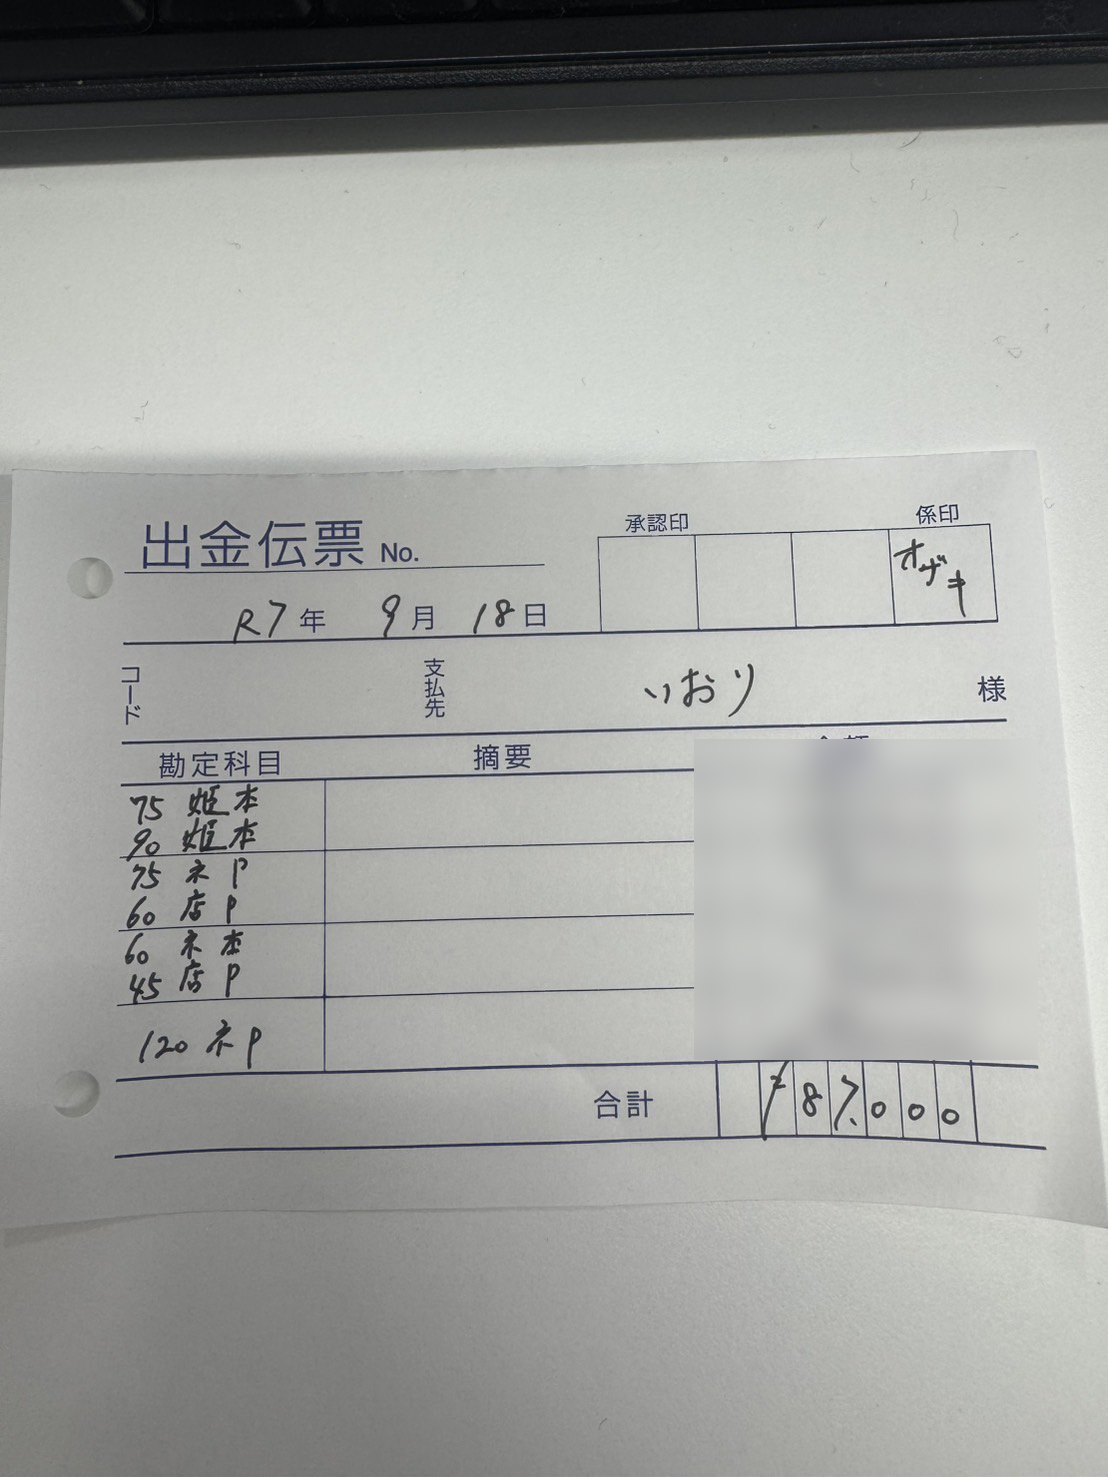 出金伝票 No.
承認印 係印
オザキ
R7年 9月 18日
コード 支払先 いおり 様
勘定科目 摘要
75 姫本
90 姫本
75 ネP
60 店P
60 ネ本
45 店P
120 ネP
合計 ¥87,000